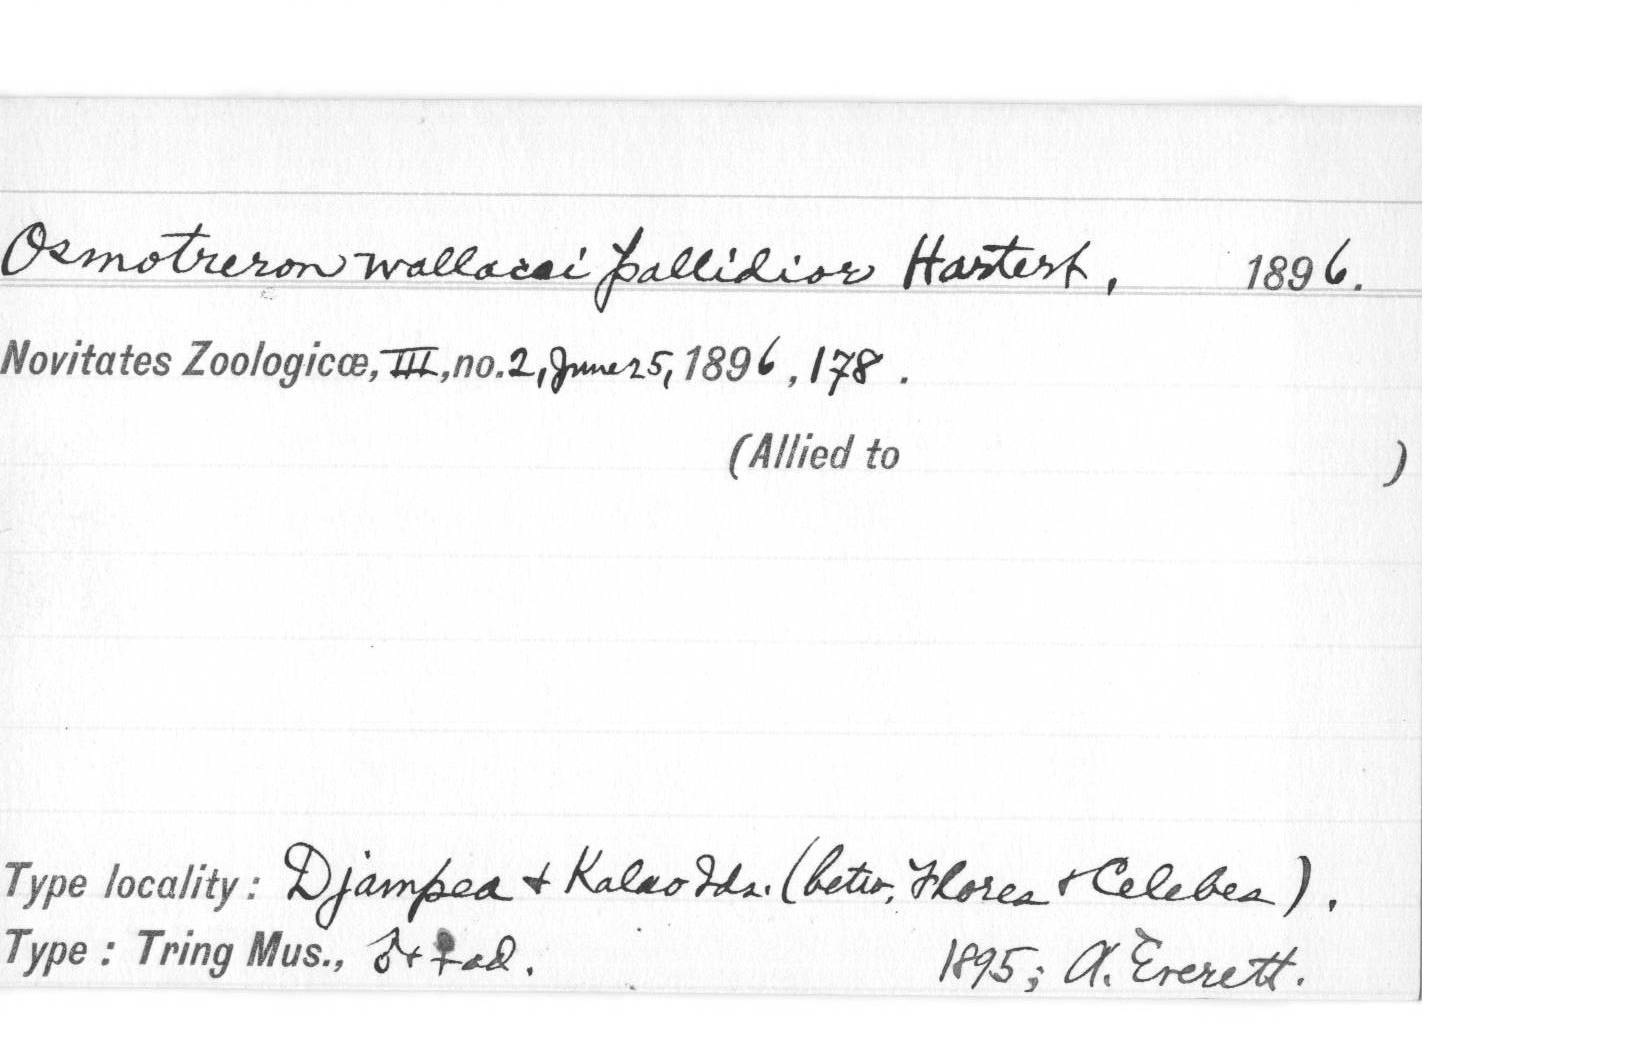 Osmotreron wallacei pallidior Hartert, 1896.
Novitates Zoologicæ, III, no. 2, June 25, 1896, 178.
(Allied to )
Type locality: Djampea + Kalao Ids. (betw. Flores + Celebes).
Type: Tring Mus., ♂ + ♀ ad. 1895; A. Everett.